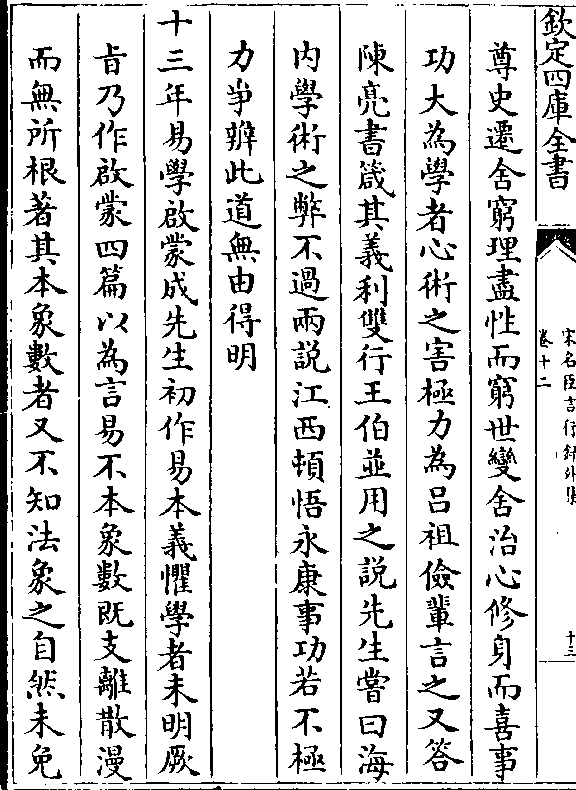 欽定四庫全書
宋名臣言行録外集
卷十二
十三
尊史遷舍窮理盡性而窮世變舍治心修身而喜事
功大為學者心術之害極力為吕祖儉輩言之又答
陳亮書箴其義利雙行王伯並用之説先生嘗曰海
内學術之弊不過兩説江西頓悟永康事功若不極
力爭辨此道無由得明
十三年易學啟蒙成先生初作易本義懼學者未明厥
㫖乃作啟蒙四篇以為言易不本象數既支離散漫
而無所根著其本象數者又不知法象之自然未免